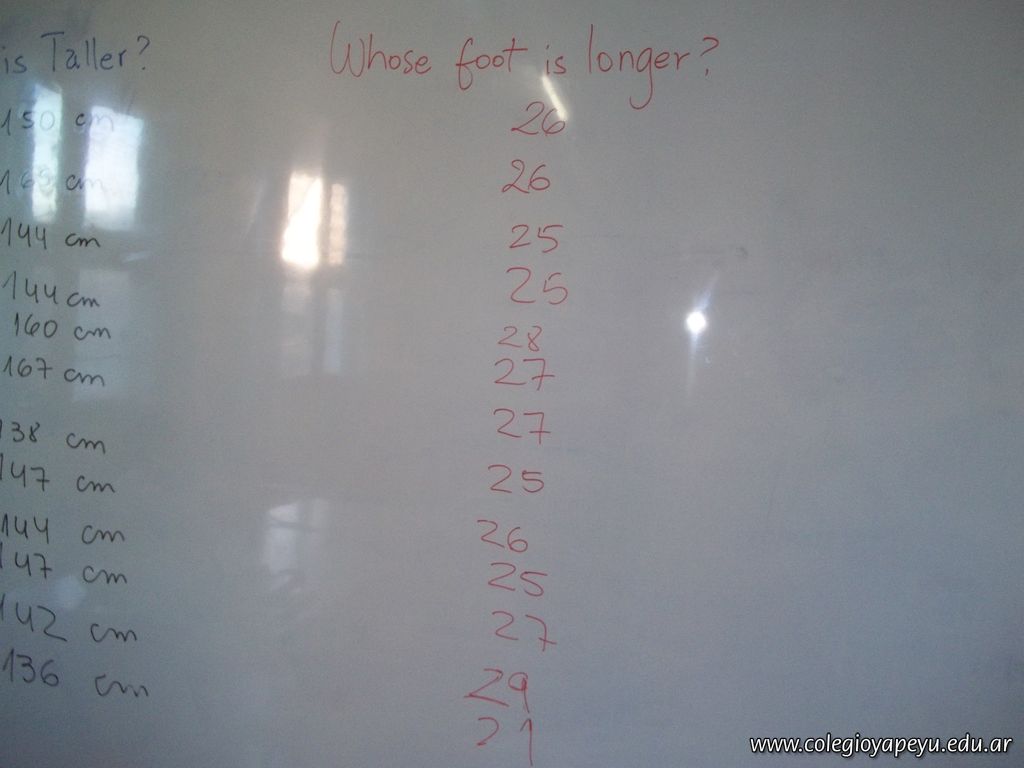 is Taller?
150 cm
169 cm
144 cm
144 cm
160 cm
167 cm
138 cm
147 cm
144 cm
147 cm
142 cm
136 cm
Whose foot is longer?
26
26
25
25
28
27
27
25
26
25
27
29
21
www.colegioyapeyu.edu.ar